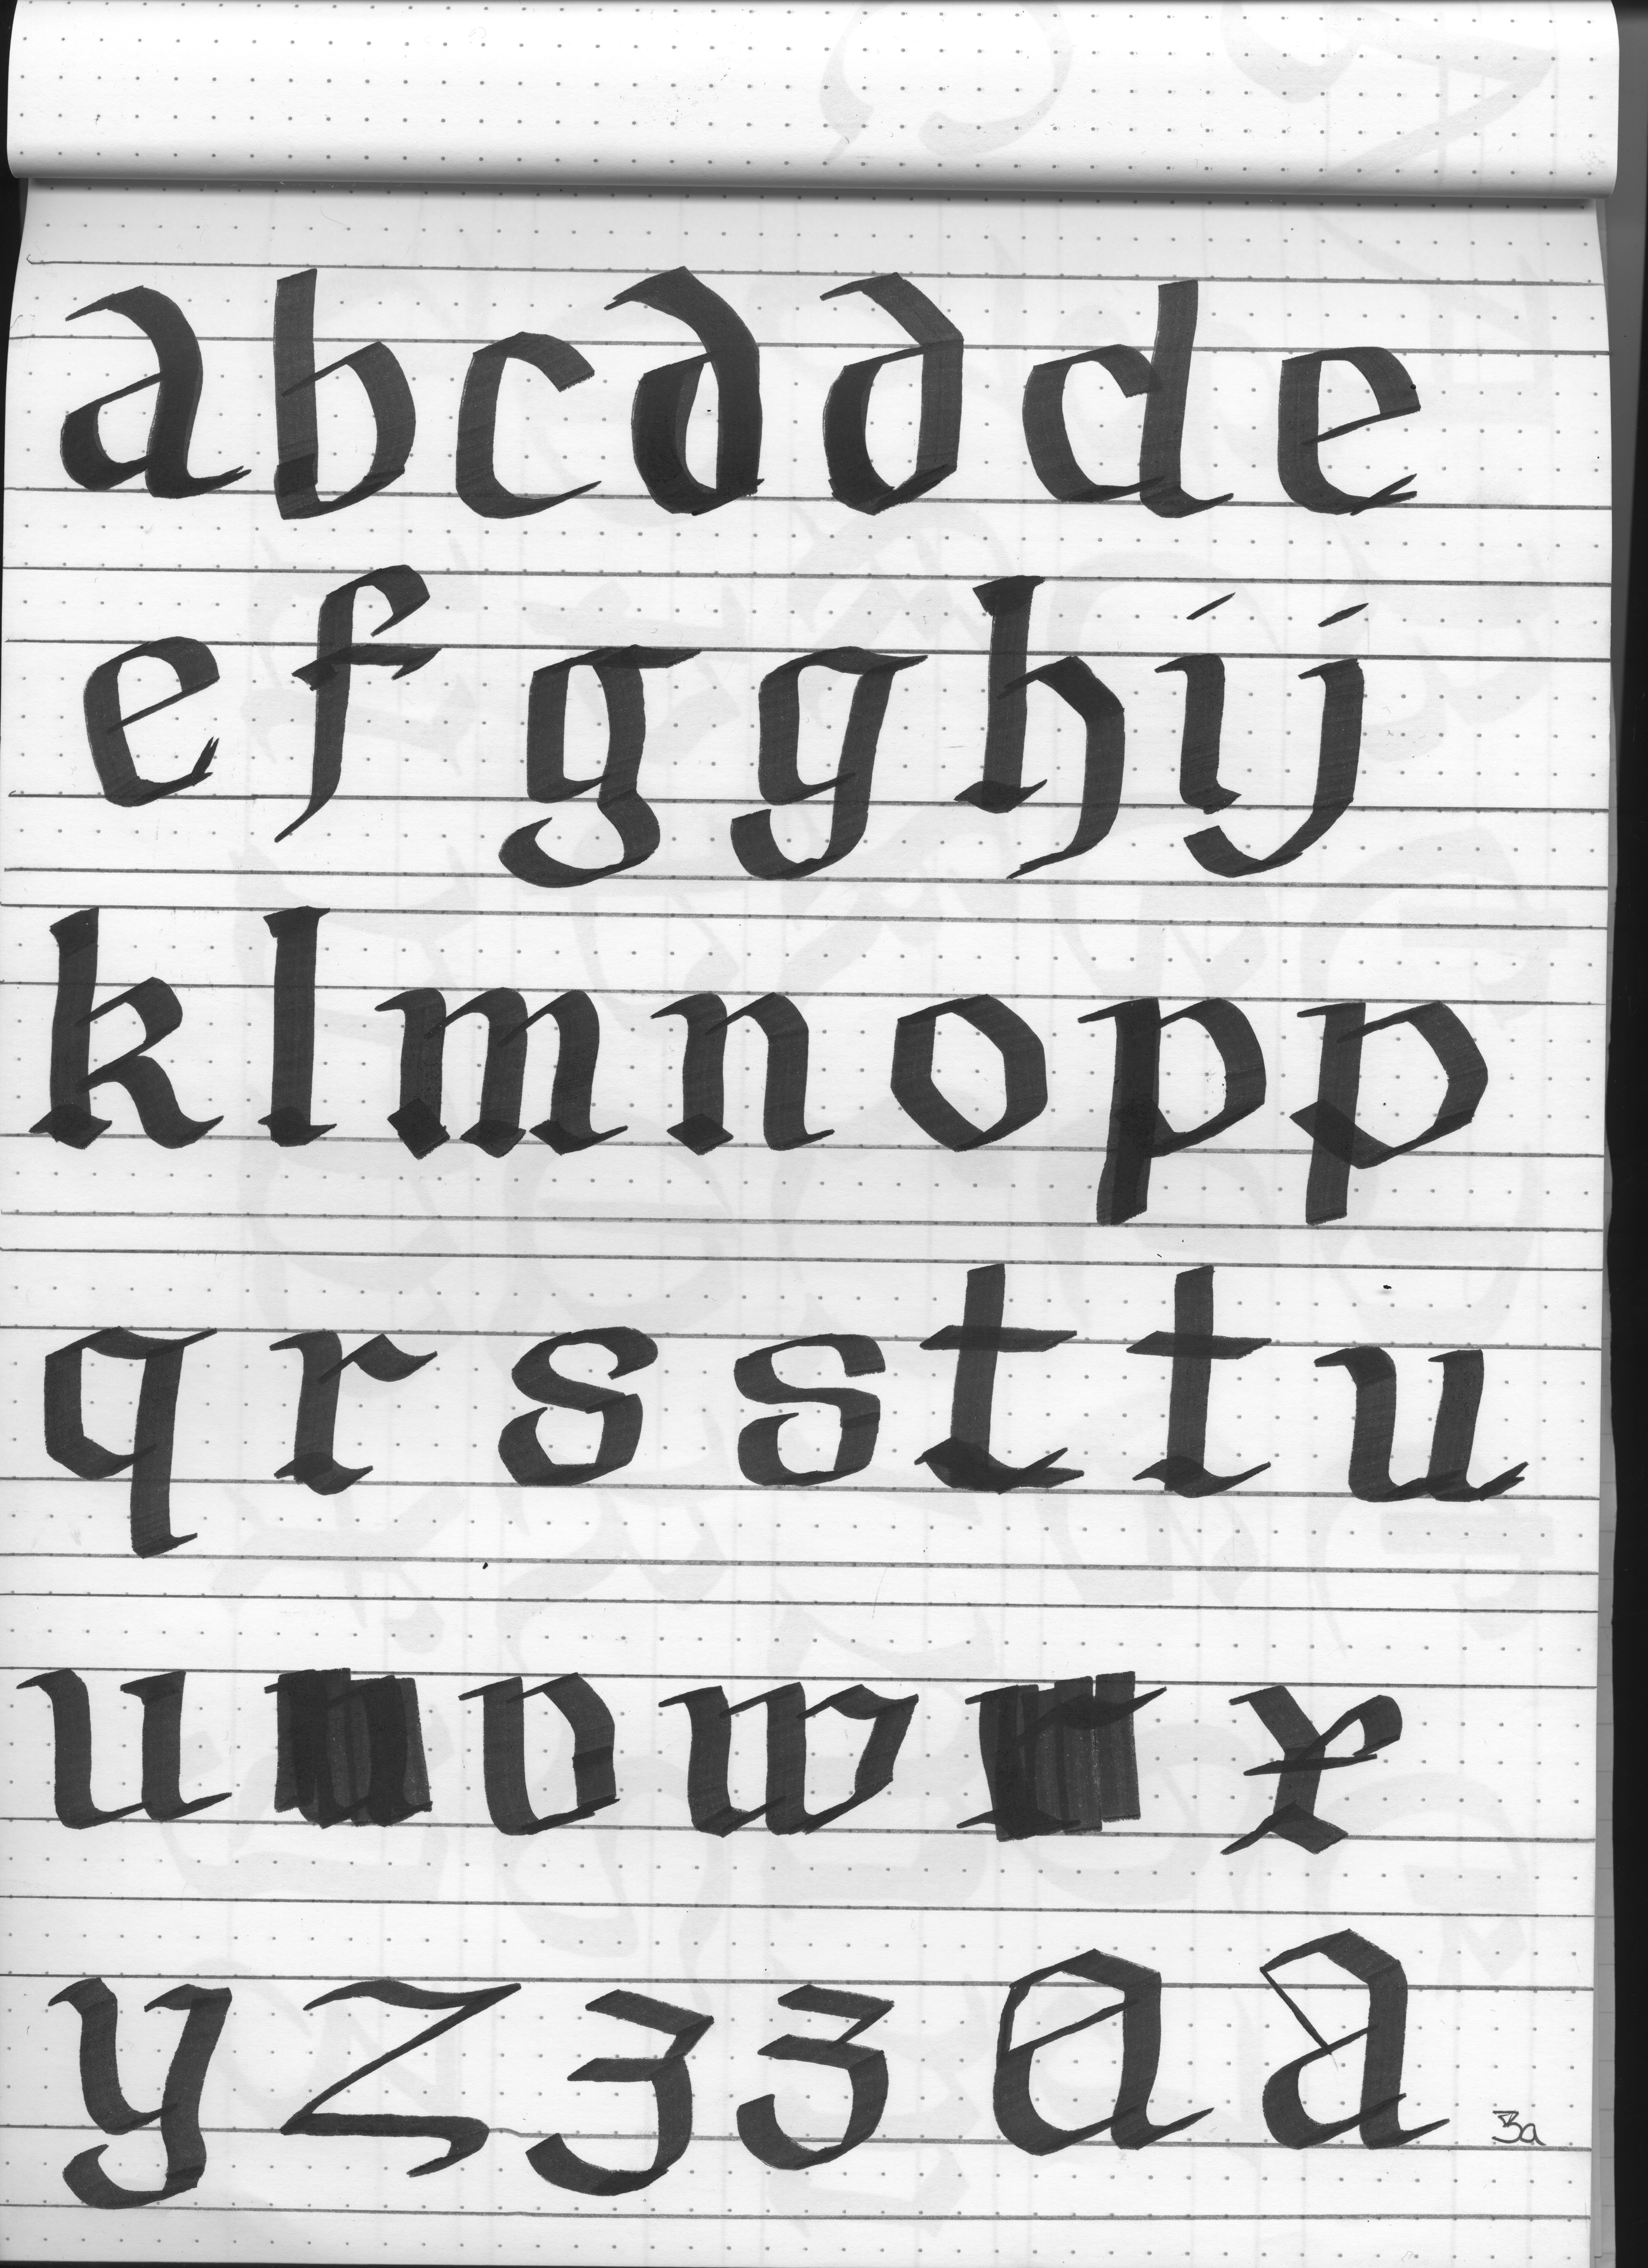 abcddde
efgghij
klmnopp
qrssttu
uvwx
yzzzaa
3a